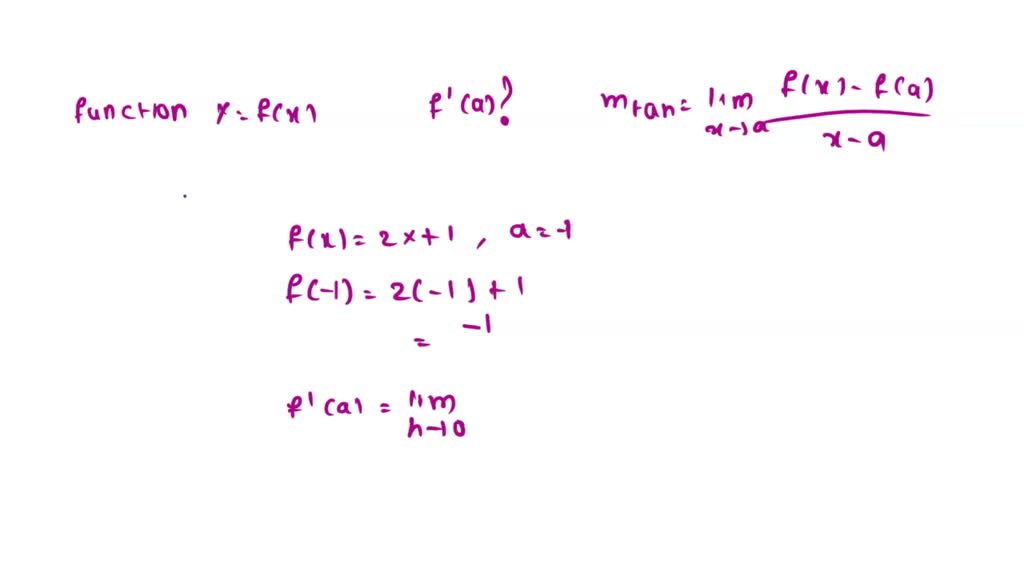 function y = f(x) f'(a)? mtan = lim x→a f(x) - f(a) / x - a
f(x) = 2x+1 , a = -1
f(-1) = 2(-1) + 1
= -1
f'(a) = lim h→0